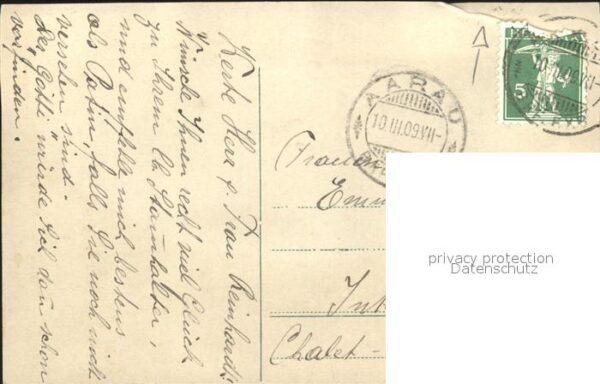 Werte Herr & Frau Reinhardt!
Wünsche Ihnen recht viel Glück
zu Ihrem lb. Stammhalter,
und empfehle mich bestens
als Patin, falls Sie noch nicht
versehen sind.
Der Götti würde sich dann schon
vorfinden.
AARAU
10.III.09.VII-
5
Emm
Chalet-
privacy protection
Datenschutz